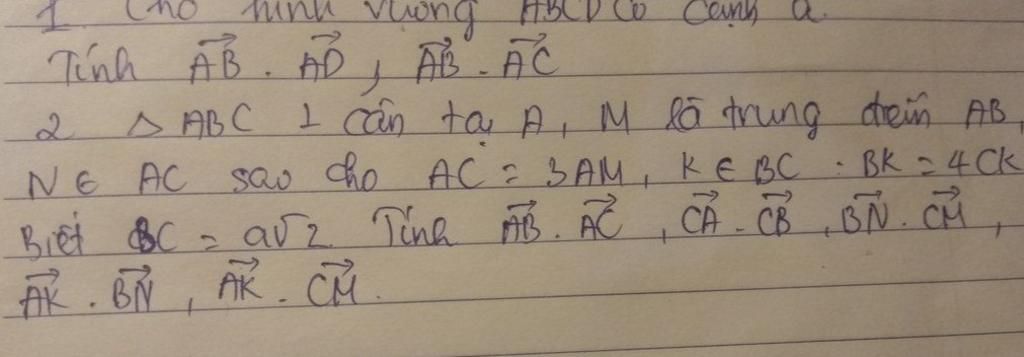 1 Cho hình vuông ABCD có cạnh a.
Tính AB . AD , AB . AC
2 △ ABC ⊥ cân tại A, M là trung điểm AB,
N ∈ AC sao cho AC = 3AM, K ∈ BC : BK = 4CK
Biết BC = a√2 Tính AB . AC , CA . CB , BN . CM ,
AK . BN , AK . CM .